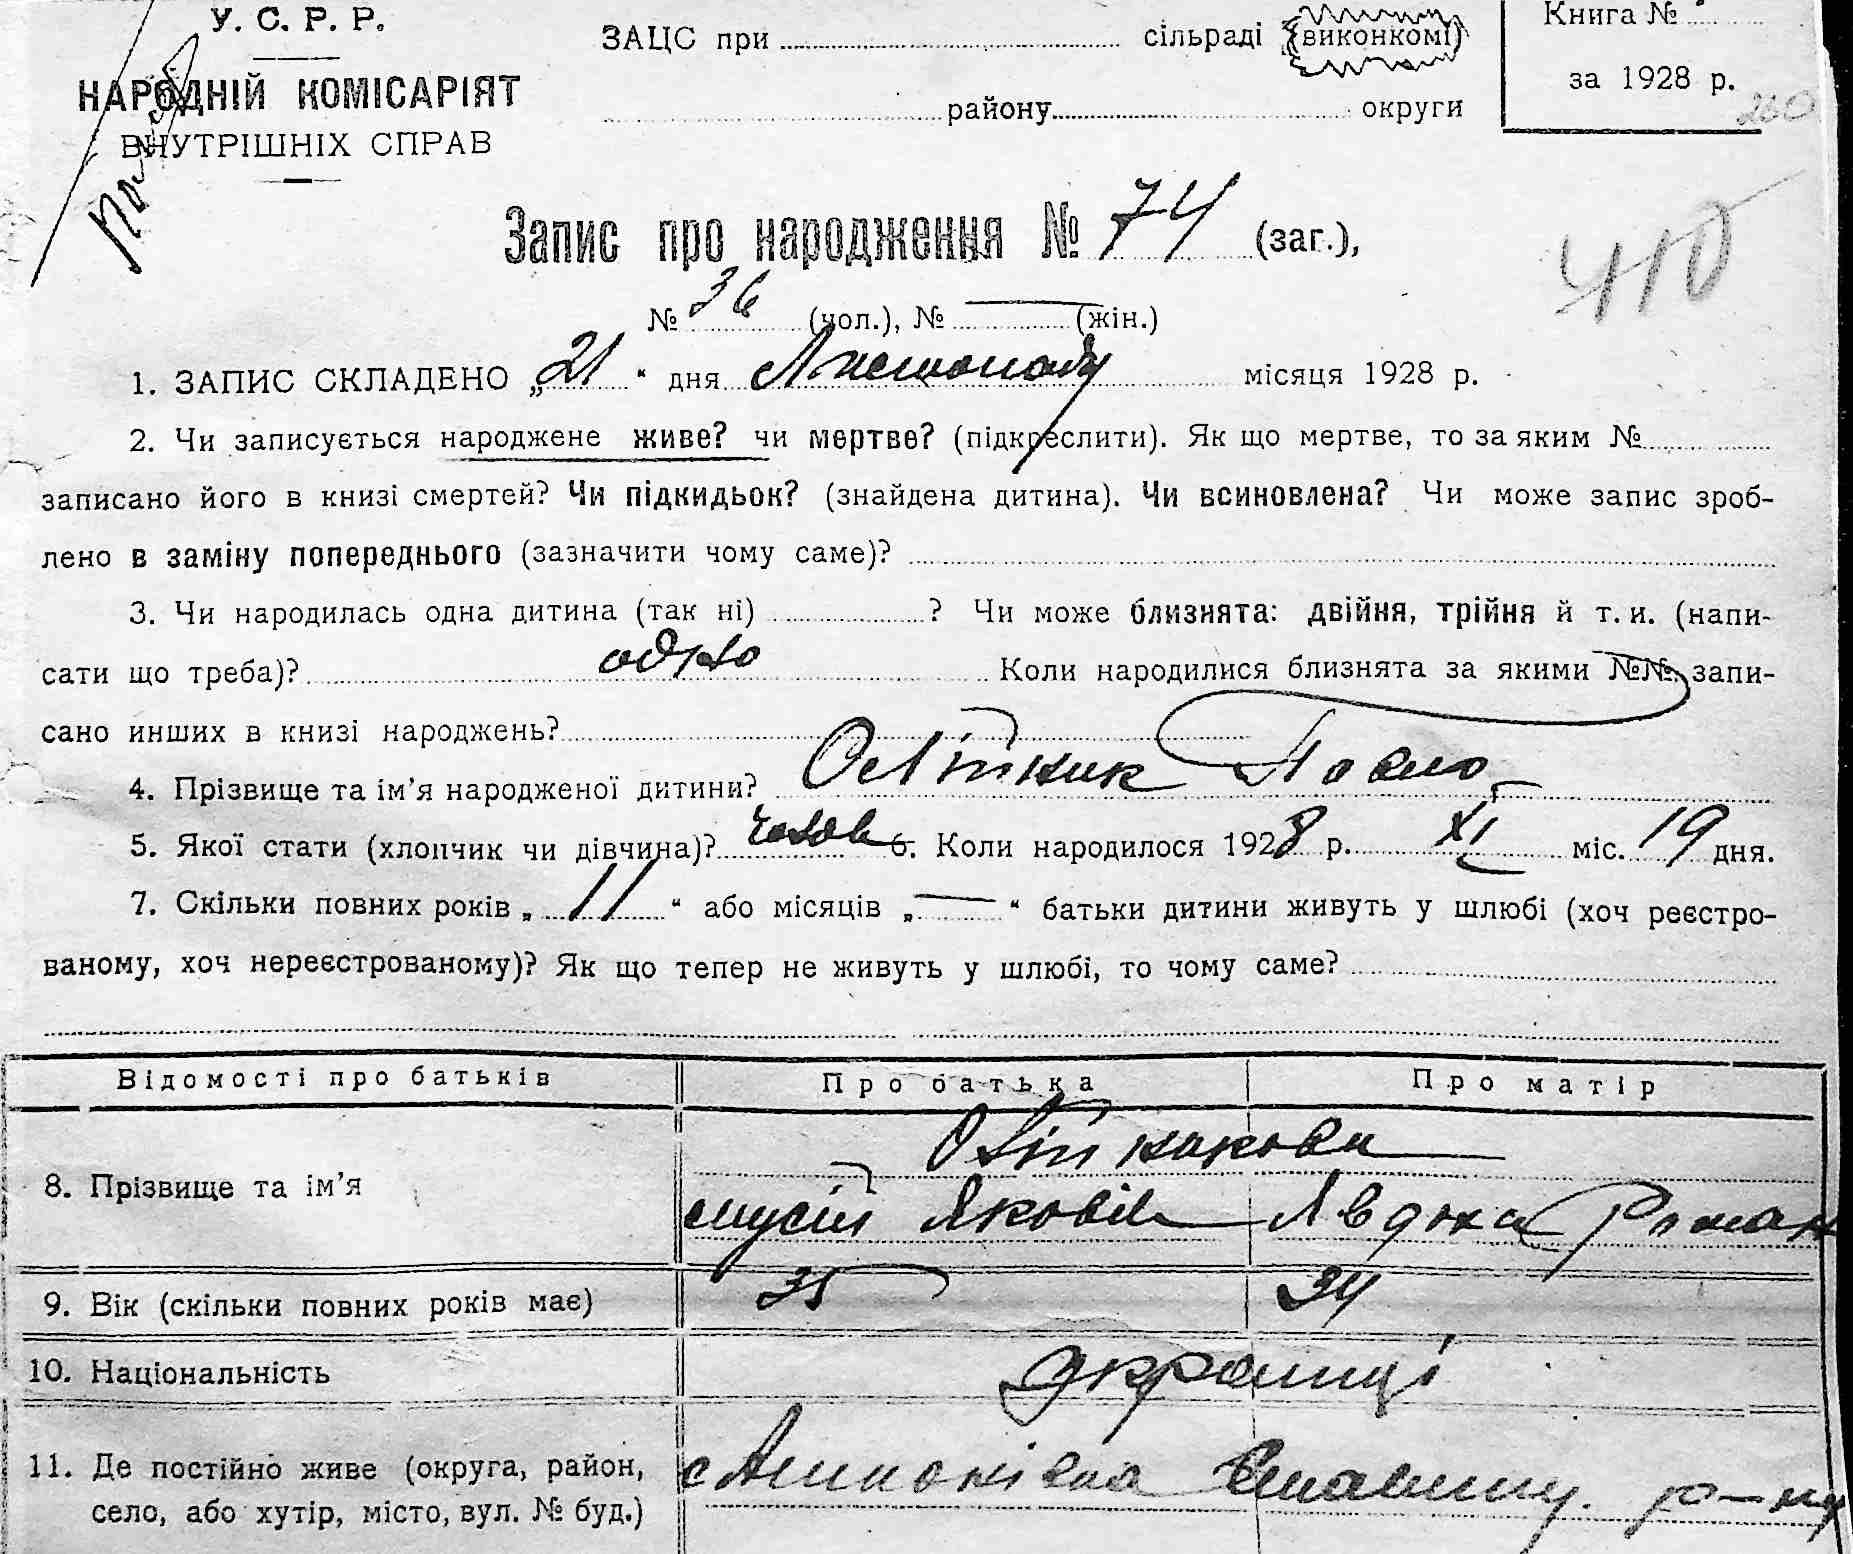 У. С. Р. Р.
НАРОДНІЙ КОМІСАРІЯТ
ВНУТРІШНІХ СПРАВ
ЗАЦС при сільраді (виконкомі)
району округи
Книга №
за 1928 р.
260
410
Запис про народження № 74 (заг.),
№ 36 (чол.), № — (жін.)
1. ЗАПИС СКЛАДЕНО „21“ дня Листопаду місяця 1928 р.
2. Чи записується народжене живе? чи мертве? (підкреслити). Як що мертве, то за яким №
записано його в книзі смертей? Чи підкидьок? (знайдена дитина). Чи всиновлена? Чи може запис зроб-
лено в заміну попереднього (зазначити чому саме)?
3. Чи народилась одна дитина (так ні) ? Чи може близнята: двійня, трійня й т. и. (напи-
сати що треба)? одно Коли народилися близнята за якими №№ запи-
сано инших в книзі народжень?
4. Прізвище та ім’я народженої дитини? Олійник Павло
5. Якої стати (хлопчик чи дівчина)? чолов 6. Коли народилося 1928 р. XI міс. 19 дня.
7. Скільки повних років „ 11 “ або місяців „ — “ батьки дитини живуть у шлюбі (хоч реєстро-
ваному, хоч нереєстрованому)? Як що тепер не живуть у шлюбі, то чому саме?
Відомості про батьків Про батька Про матір
Олійникови
8. Прізвище та ім’я
Мусій Яковів Явдоха Роман
9. Вік (скільки повних років має) 35 34
10. Національність українці
11. Де постійно живе (округа, район,
село, або хутір, місто, вул. № буд.)
с Антонівка Ставищ. р-ну